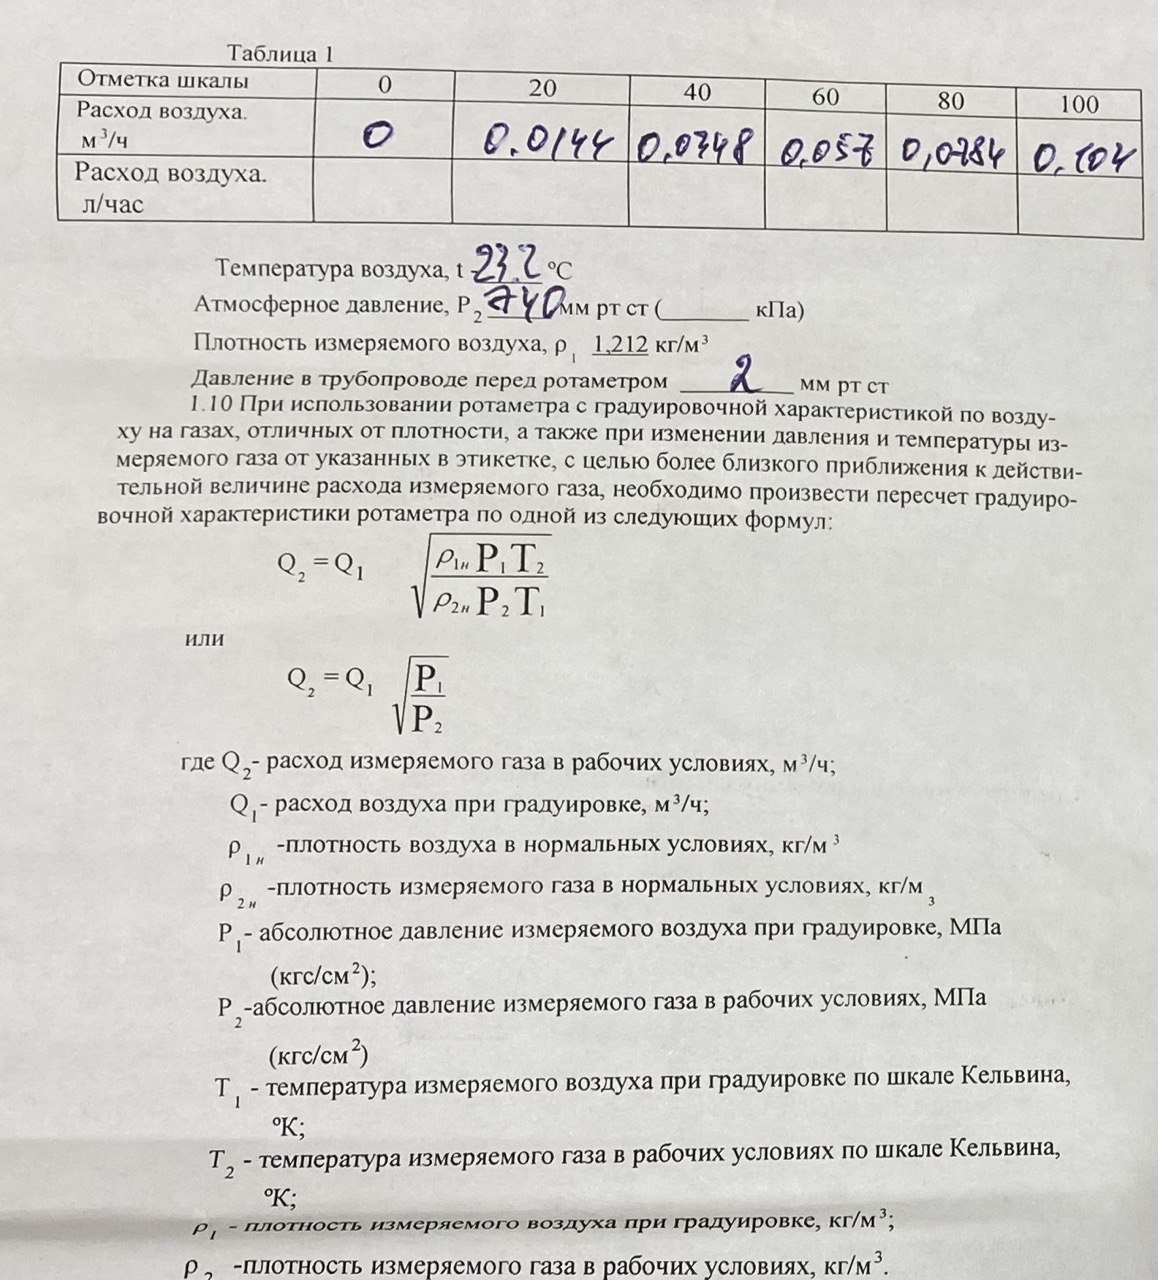 Таблица 1
Отметка шкалы 0 20 40 60 80 100
Расход воздуха. м³/ч 0 0.0144 0,0348 0,057 0,0784 0.104
Расход воздуха. л/час
Температура воздуха, t 23.2 ºС
Атмосферное давление, P₂ 740 мм рт ст (_______ кПа)
Плотность измеряемого воздуха, ρ₁ 1,212 кг/м³
Давление в трубопроводе перед ротаметром 2 мм рт ст
1.10 При использовании ротаметра с градуировочной характеристикой по возду-
ху на газах, отличных от плотности, а также при изменении давления и температуры из-
меряемого газа от указанных в этикетке, с целью более близкого приближения к действи-
тельной величине расхода измеряемого газа, необходимо произвести пересчет градуиро-
вочной характеристики ротаметра по одной из следующих формул:
Q₂ = Q₁ √(ρ₁ₙ P₁ T₂ / ρ₂ₙ P₂ T₁)
или
Q₂ = Q₁ √(P₁ / P₂)
где Q₂- расход измеряемого газа в рабочих условиях, м³/ч;
Q₁- расход воздуха при градуировке, м³/ч;
ρ₁ н -плотность воздуха в нормальных условиях, кг/м ³
ρ₂ н -плотность измеряемого газа в нормальных условиях, кг/м ₃
P₁- абсолютное давление измеряемого воздуха при градуировке, МПа
(кгс/см²);
P₂-абсолютное давление измеряемого газа в рабочих условиях, МПа
(кгс/см²)
T₁ - температура измеряемого воздуха при градуировке по шкале Кельвина,
ºК;
T₂ - температура измеряемого газа в рабочих условиях по шкале Кельвина,
ºК;
ρ₁ - плотность измеряемого воздуха при градуировке, кг/м³;
ρ₂ -плотность измеряемого газа в рабочих условиях, кг/м³.